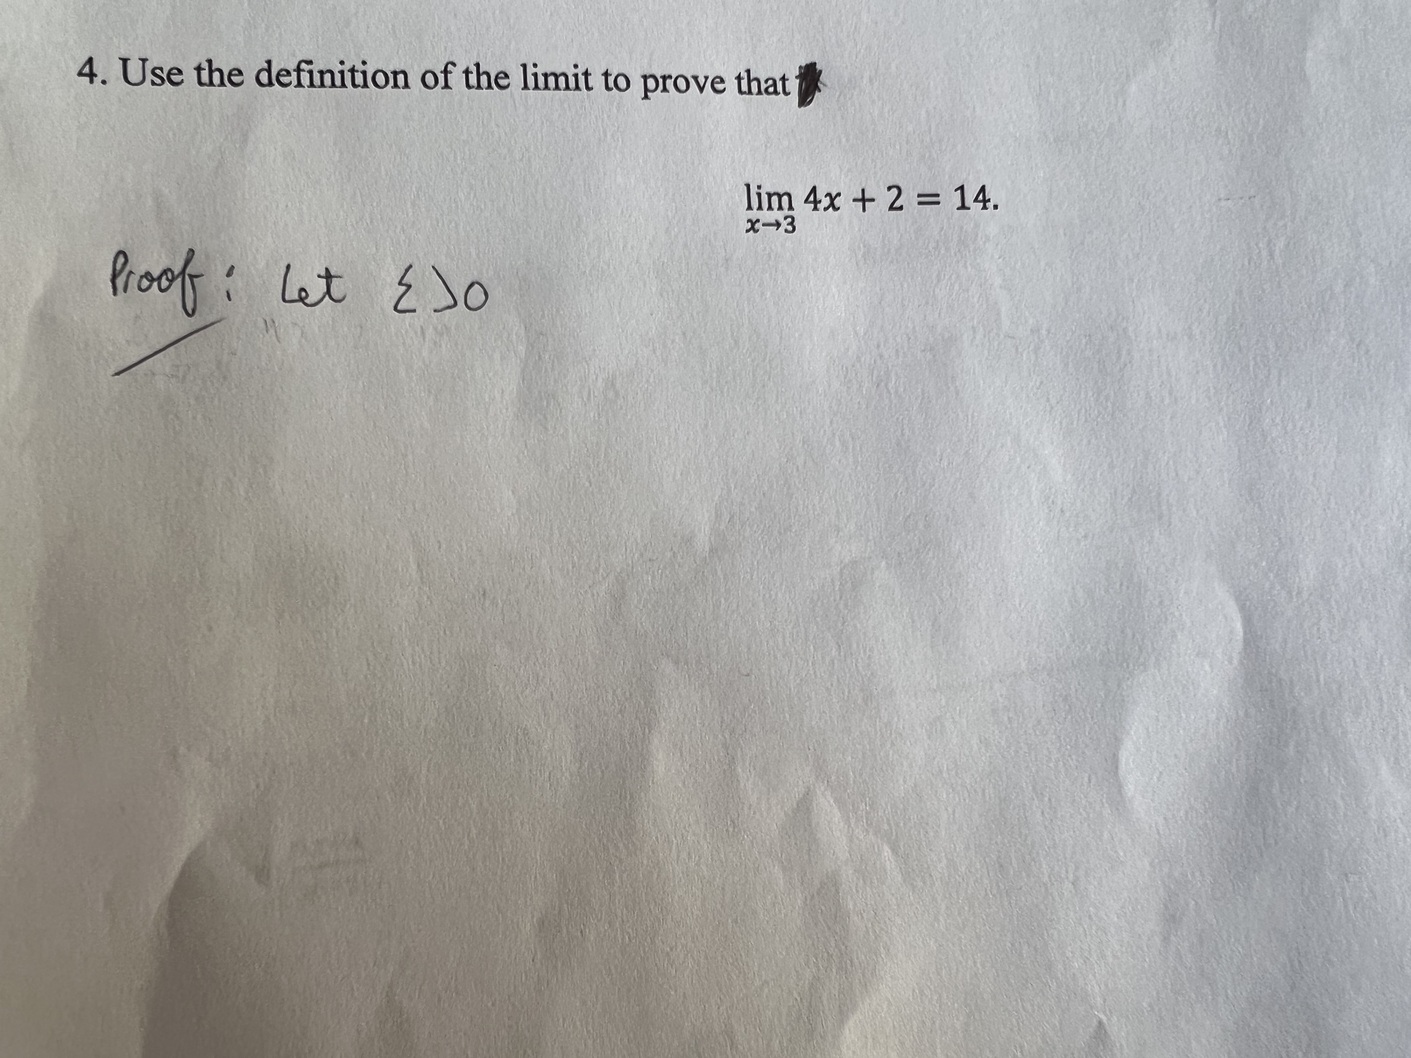 4. Use the definition of the limit to prove that
lim 4x + 2 = 14.
x→3
Proof: Let ε>0